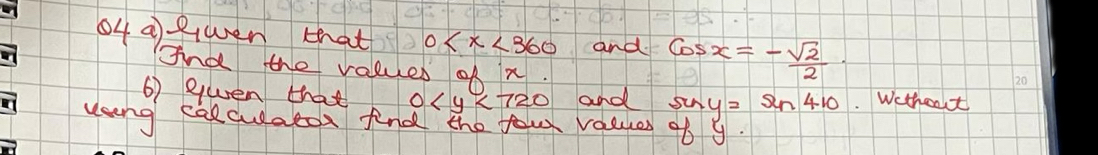 04 a) Given that 0 < x < 360 and Cos x = -√2/2 .
Find the values of x .
b) Given that 0 < y < 720 and sin y = sin 410 . Without
using calculator find the four values of y .
20